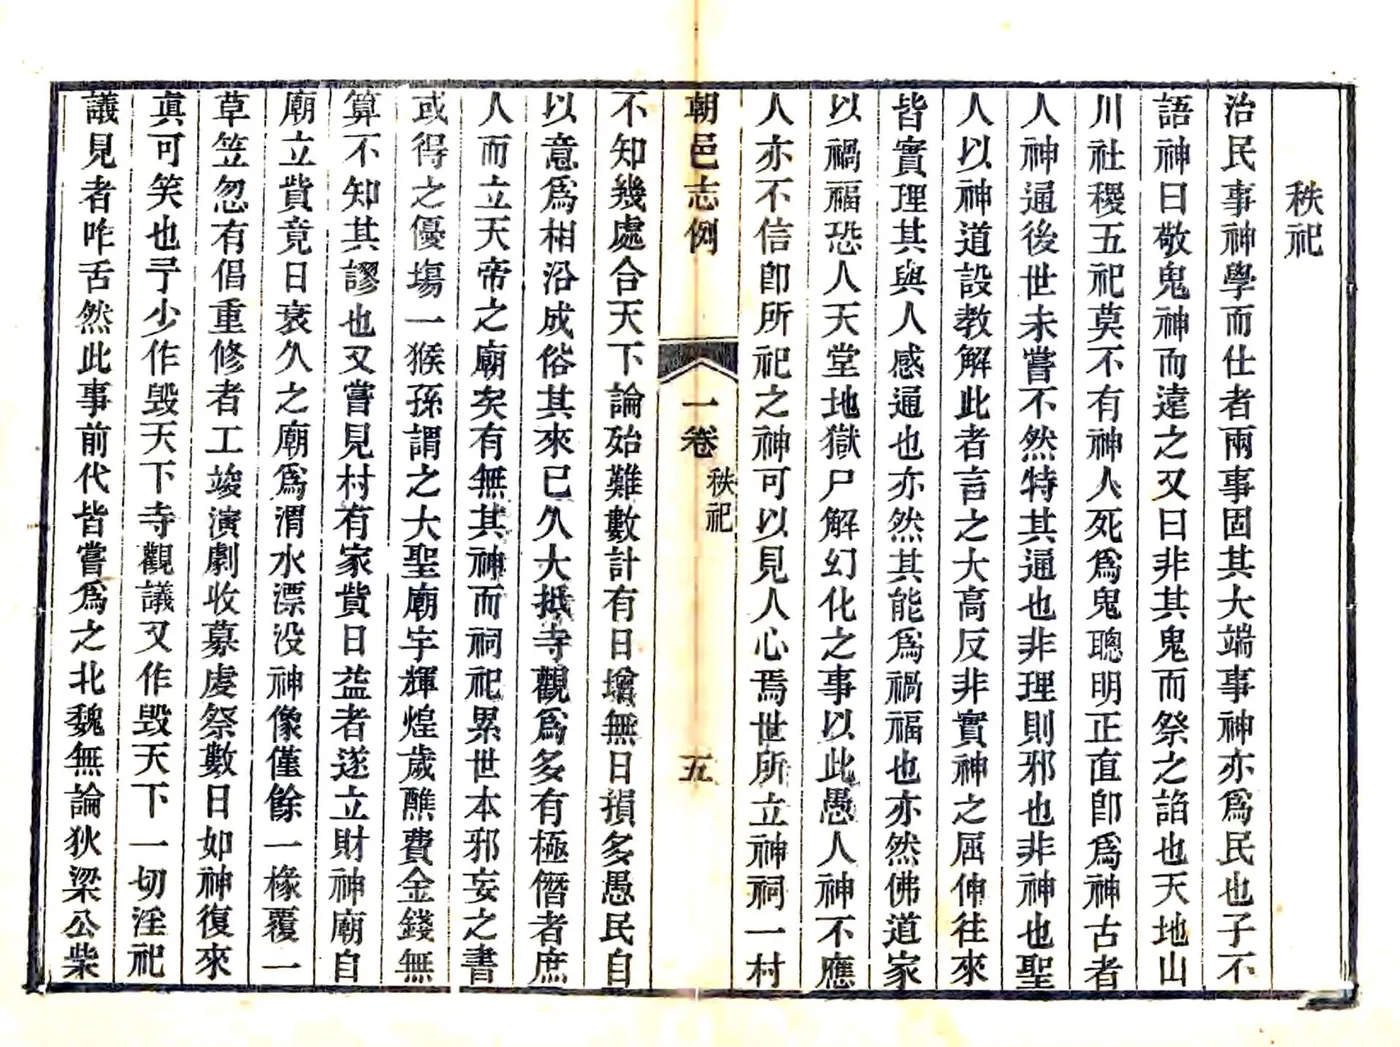 秩祀
治民事神學而仕者兩事固其大端事神亦爲民也子不
語神曰敬鬼神而遠之又曰非其鬼而祭之諂也天地山
川社稷五祀莫不有神人死爲鬼聰明正直卽爲神古者
人神通後世未嘗不然特其通也非理則邪也非神也聖
人以神道設教解此者言之大高反非實神之屈伸往來
皆實理其與人感通也亦然其能爲禍福也亦然佛道家
以禍福恐人天堂地獄尸解幻化之事以此愚人神不應
人亦不信卽所祀之神可以見人心焉世所立神祠一村
朝邑志例
一卷
秩祀
五
不知幾處合天下論殆難數計有日增無日損多愚民自
以意爲相沿成俗其來已久大抵寺觀爲多有極僭者庶
人而立天帝之廟矣有無其神而祠祀累世本邪妄之書
或得之優塲一猴孫謂之大聖廟宇輝煌歲醮費金錢無
算不知其謬也又嘗見村有家貲日益者遂立財神廟自
廟立貲竟日衰久之廟爲渭水漂没神像僅餘一椽覆一
草笠忽有倡重修者工竣演劇收募虔祭數日如神復來
眞可笑也予少作毀天下寺觀議又作毀天下一切淫祀
議見者咋舌然此事前代皆嘗爲之北魏無論狄梁公柴